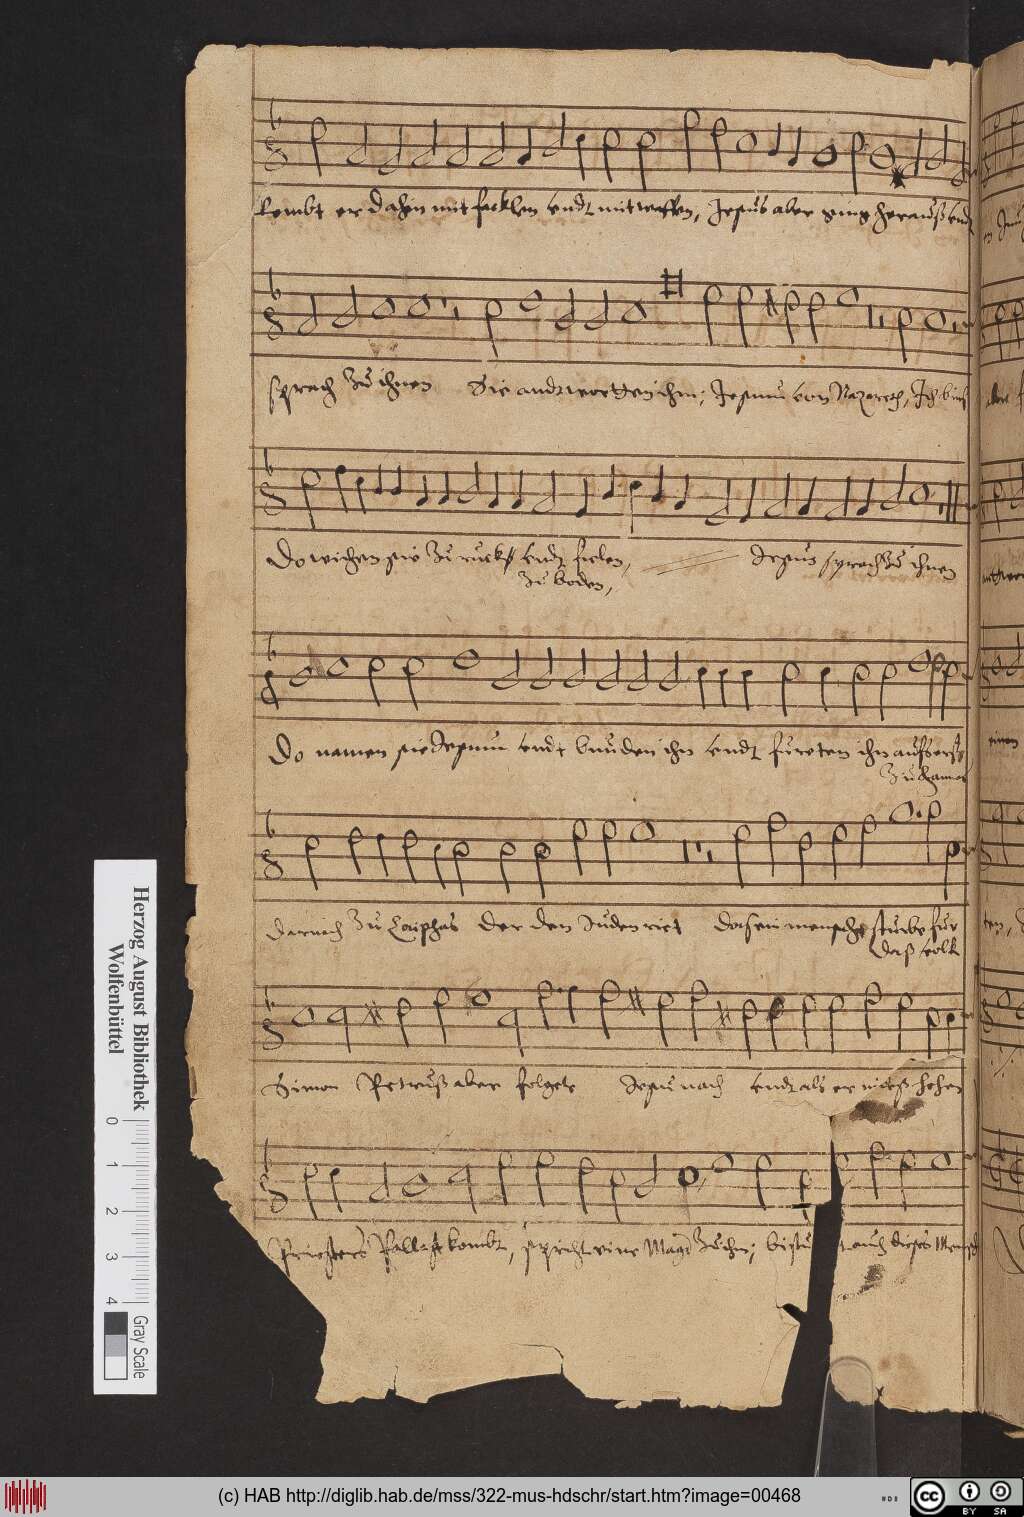 kombt er dahin mit facklen undt mit waffen, Jesus aber ging herauß undt
sprach zu ihnen Sie andtwortten ihm; Jesum von Nazareth, Ich bins
Do wichen sie zu ruck undt fielen, Jesus sprach zu ihnen
zu boden,
Do namen sie Jesum undt bunden ihn undt fureten ihn aufs erste
zu Hannas
darnach zu Caiphas der den Juden riet das ein mensche sturbe fur
daß volk
Simon Petruß aber folgete Jesu nach undt als er in deß hohen
Priesters Pallast kombt, spricht eine Magd zu ihm; bistu auch dieses Mensch
Herzog August Bibliothek
Wolfenbüttel
0 1 2 3 4
Gray Scale
(c) HAB http://diglib.hab.de/mss/322-mus-hdschr/start.htm?image=00468
HAB
cc BY SA